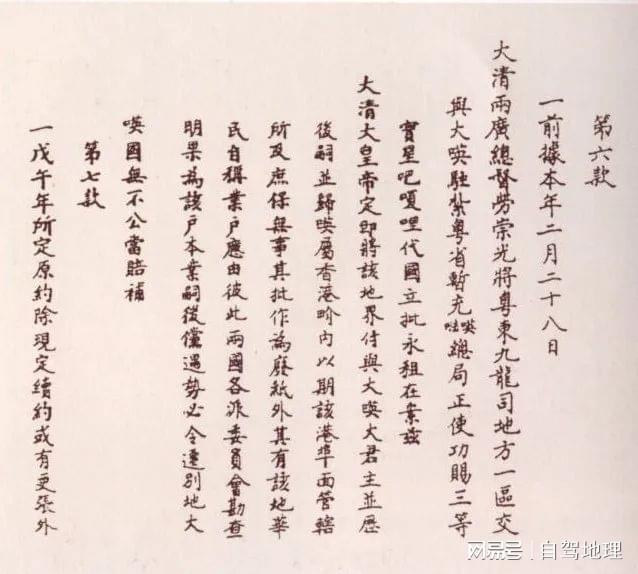 第六款
一前據本年二月二十八日
大清兩廣總督勞崇光將粵東九龍司地方一區交
與大㖮駐紮粵省暫充㖮𠵽總局正使功賜三等
寶星吧嗄哩代國立批永租在案茲
大清大皇帝定即將該地界付與大㖮大君主並歷
後嗣並歸㖮屬香港界內以期該港埠面管轄
所及庶保無事其批作為廢紙外其有該地華
民自稱業戶應由彼此兩國各派委員會勘查
明果為該戶本業嗣後儻遇勢必令遷別地大
㖮國無不公當賠補
第七款
一戊午年所定原約除現定續約或有更張外
网易号 | 自驾地理